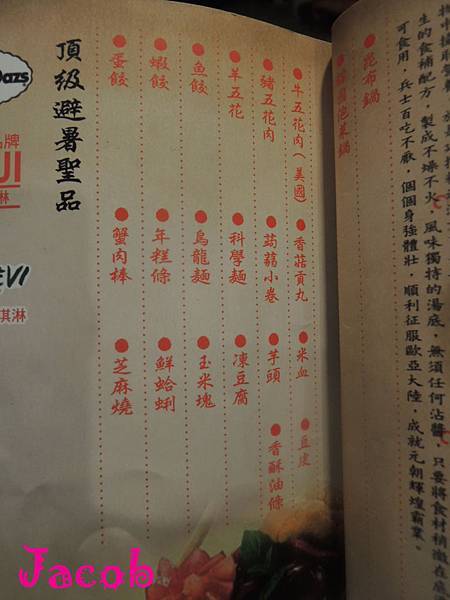 中擷取營養,
生的食補配方,製成不燥不火,風味獨特的湯底,無須任何沾醬,只要將食材稍微在
可食用,兵士百吃不厭,個個身強體壯,順利征服歐亞大陸,成就元朝輝煌霸業。
●昆布鍋
●韓國泡菜鍋
●牛五花肉(美國) ●香菇貢丸 ●米血 ●豆皮
●豬五花肉 ●蒟蒻小卷 ●芋頭 ●香酥油條
●羊五花 ●科學麵 ●凍豆腐
●魚餃 ●烏龍麵 ●玉米塊
●蝦餃 ●年糕條 ●鮮蛤蜊
●蛋餃 ●蟹肉棒 ●芝麻燒
頂級避暑聖品
Dazs
品牌
JI
淋
EVI
淇淋
Jacob